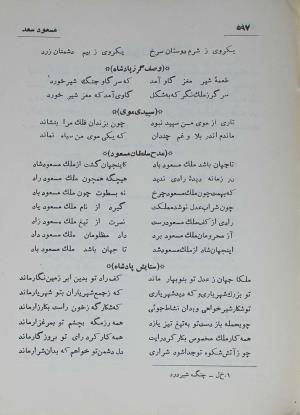 ۵۹۷ مسعود سعد
یکروی ز شرم دوستان سرخ یکروی ز بیم دشمنان زرد
*(وصف گرز پادشاه)*
طعمهٔ شیر مغز گاو آمد که سر گاو چنگ شیر خورد
سر گرز ملک نگر که بشکل گاوی آمد که مغز شیر خورد
*(سپیدی موی)*
تاری از موی من سپید نبود چون بزندان فلک مرا بنشاند
ماندم اندر بلا و غم چندان که یکی موی من سیاه نماند
*(مدح سلطان مسعود)*
تا جهان باشد ملک مسعود باد کاینجهان گشت از ملک مسعود شاد
در زمانه دیدهٔ رادی ندید هیچگه همچون ملک مسعود راد
که بهمت چون ملک مسعود چرخ نه بسطوت چون ملک مسعود باد
چون شراب عدل نوشد مملکت گیرد از نام ملک مسعود یاد
رادی از کف ملک مسعود رست نصرت از تیغ ملک مسعود زاد
آز محرومان ملک مسعود برد داد مظلومان ملک مسعود داد
اینجهان شاد از ملک مسعود شد تا جهان باشد ملک مسعود باد
*(ستایش پادشاه)*
ملکا جهان ز عدل تو بنوبهار ماند کف راد تو بدین ابر زمین نگار ماند
تو بزرگ شهریاری و که دید شهریاری که ز جمع شهریاران بتو شهریار ماند
تو شکار شیر خواهی و بدان نشاط جوئی که شکار گه ز خون راست بکارزار ماند
چو بحمله باز دست تو به تیغ تیز یازد همه رزمگه بچشم تو بمرغزار ماند
همه کار ملک مخصوص بکار کرد رایت همه کار کرد رای تو بروزگار ماند
چو ز آتش شکوه تو جداشود شراری دل دشمن تو خواهم که بدان شرار ماند
۱- خ ل – چنگه شیر درد